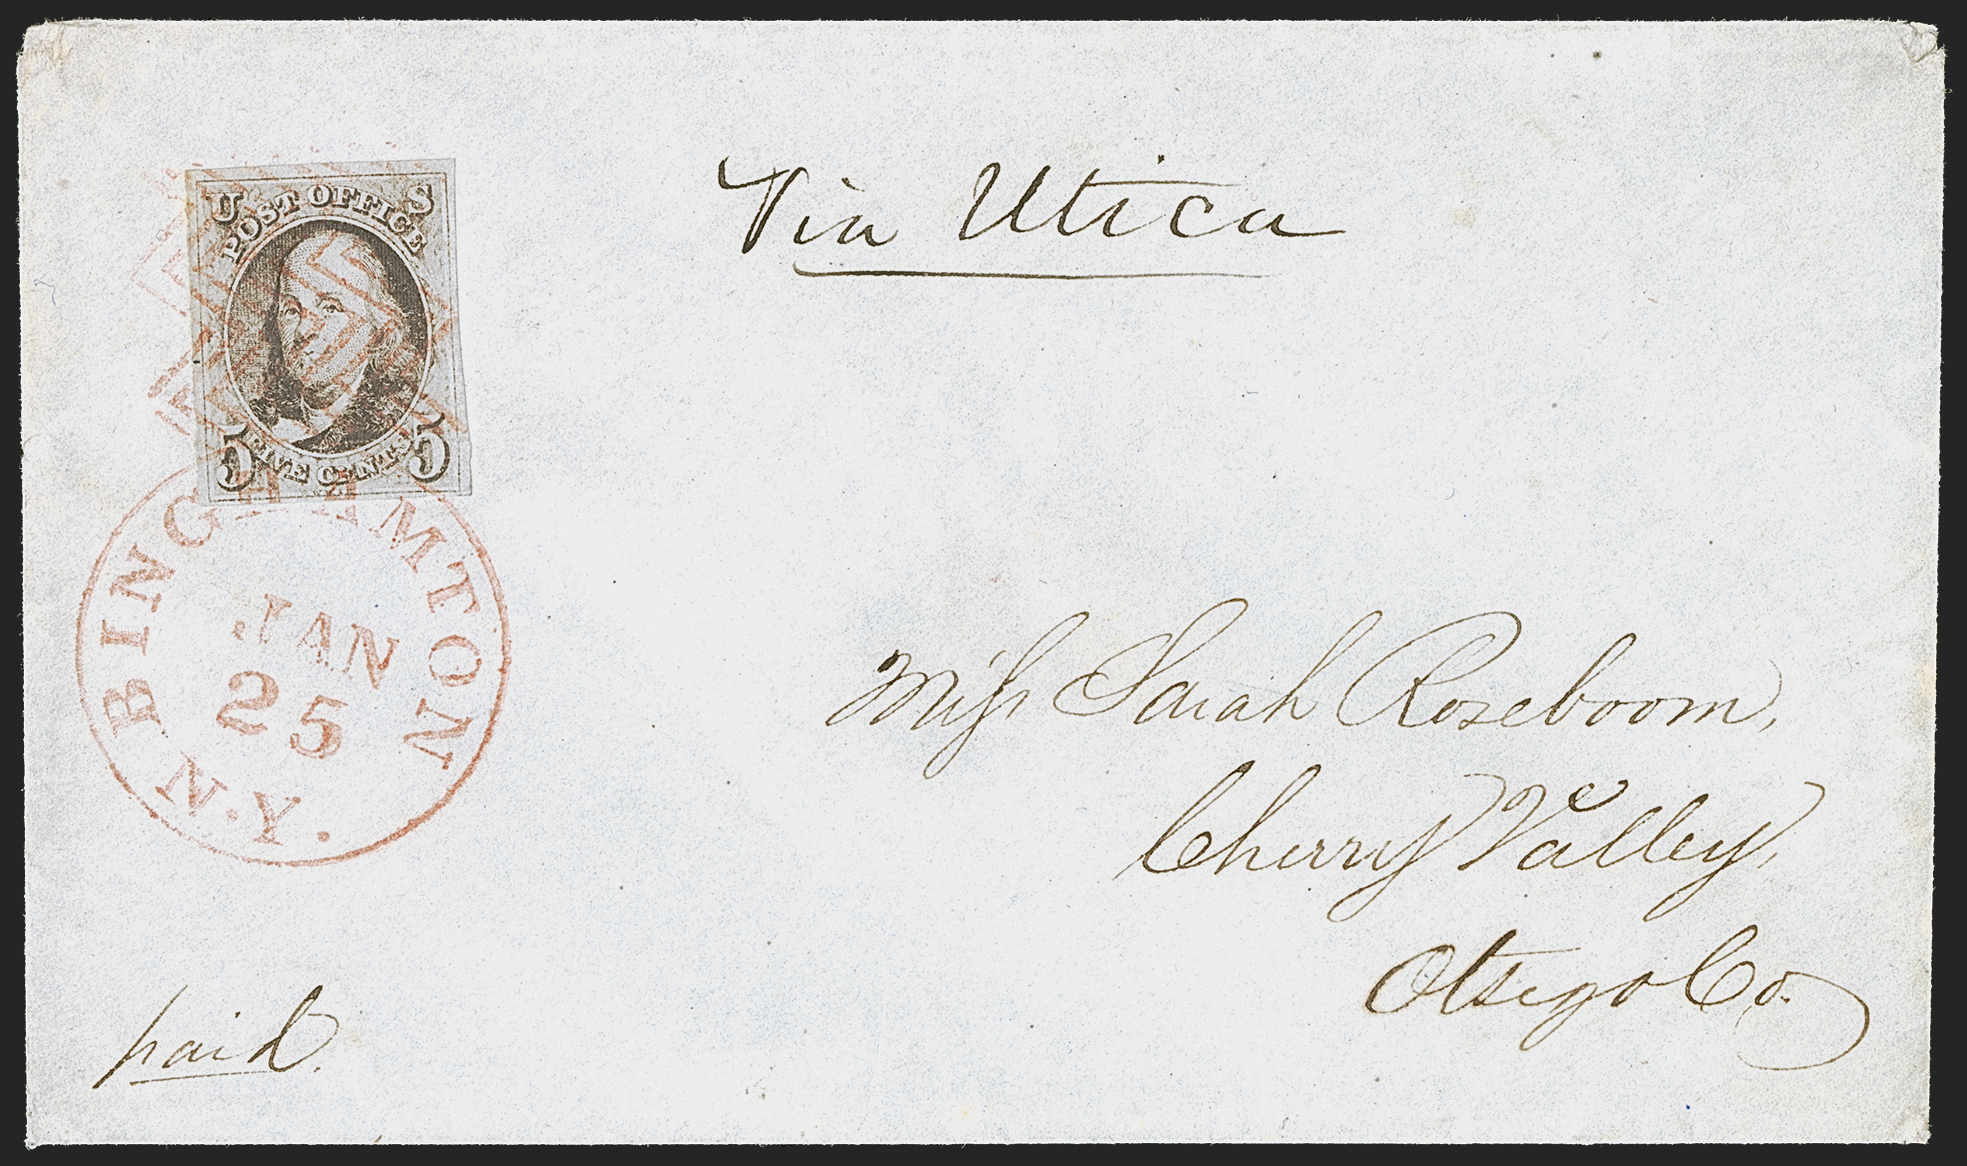 Via Utica
U S
POST OFFICE
5 FIVE CENTS 5
BINGHAMTON
JAN
25
N.Y.
Miss Sarah Roseboom,
Cherry Valley,
Otsego Co.
paid.